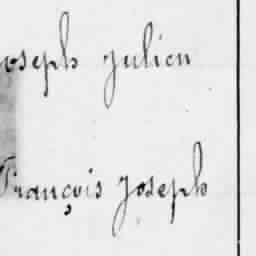 Joseph Julien
François Joseph